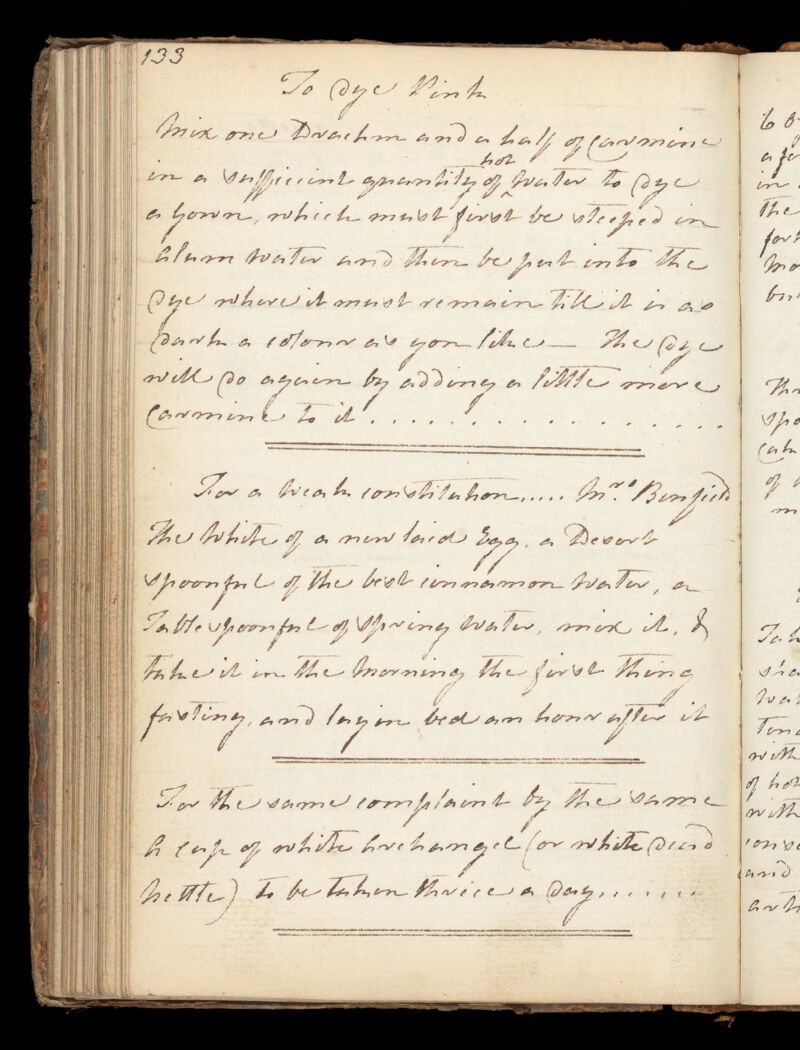 133
To dye Pink
Mix one Drachm and a half of Carmine
in a sufficient quantity of ^hot Water to dye
a gown, which must first be steeped in
Alum Water and then be put into the
dye where it must remain till it is as
dark a colour as you like — The dye
will do again by adding a little more
Carmine to it . . . . . . . . . . . . . . . . .
For a Weak constitution..... Mrs Benfield
The White of a new laid Egg, a Desert
spoonful of the best cinnamon Water, a
Table spoonful of Spring Water, mix it, &
take it in the Morning the first thing
fasting, and lay in bed an hour after it
For the same complaint by the same
A cup of white Archangel (or white dead
Nettle) to be taken thrice a day......
a
in
the
of
of hot
with
and